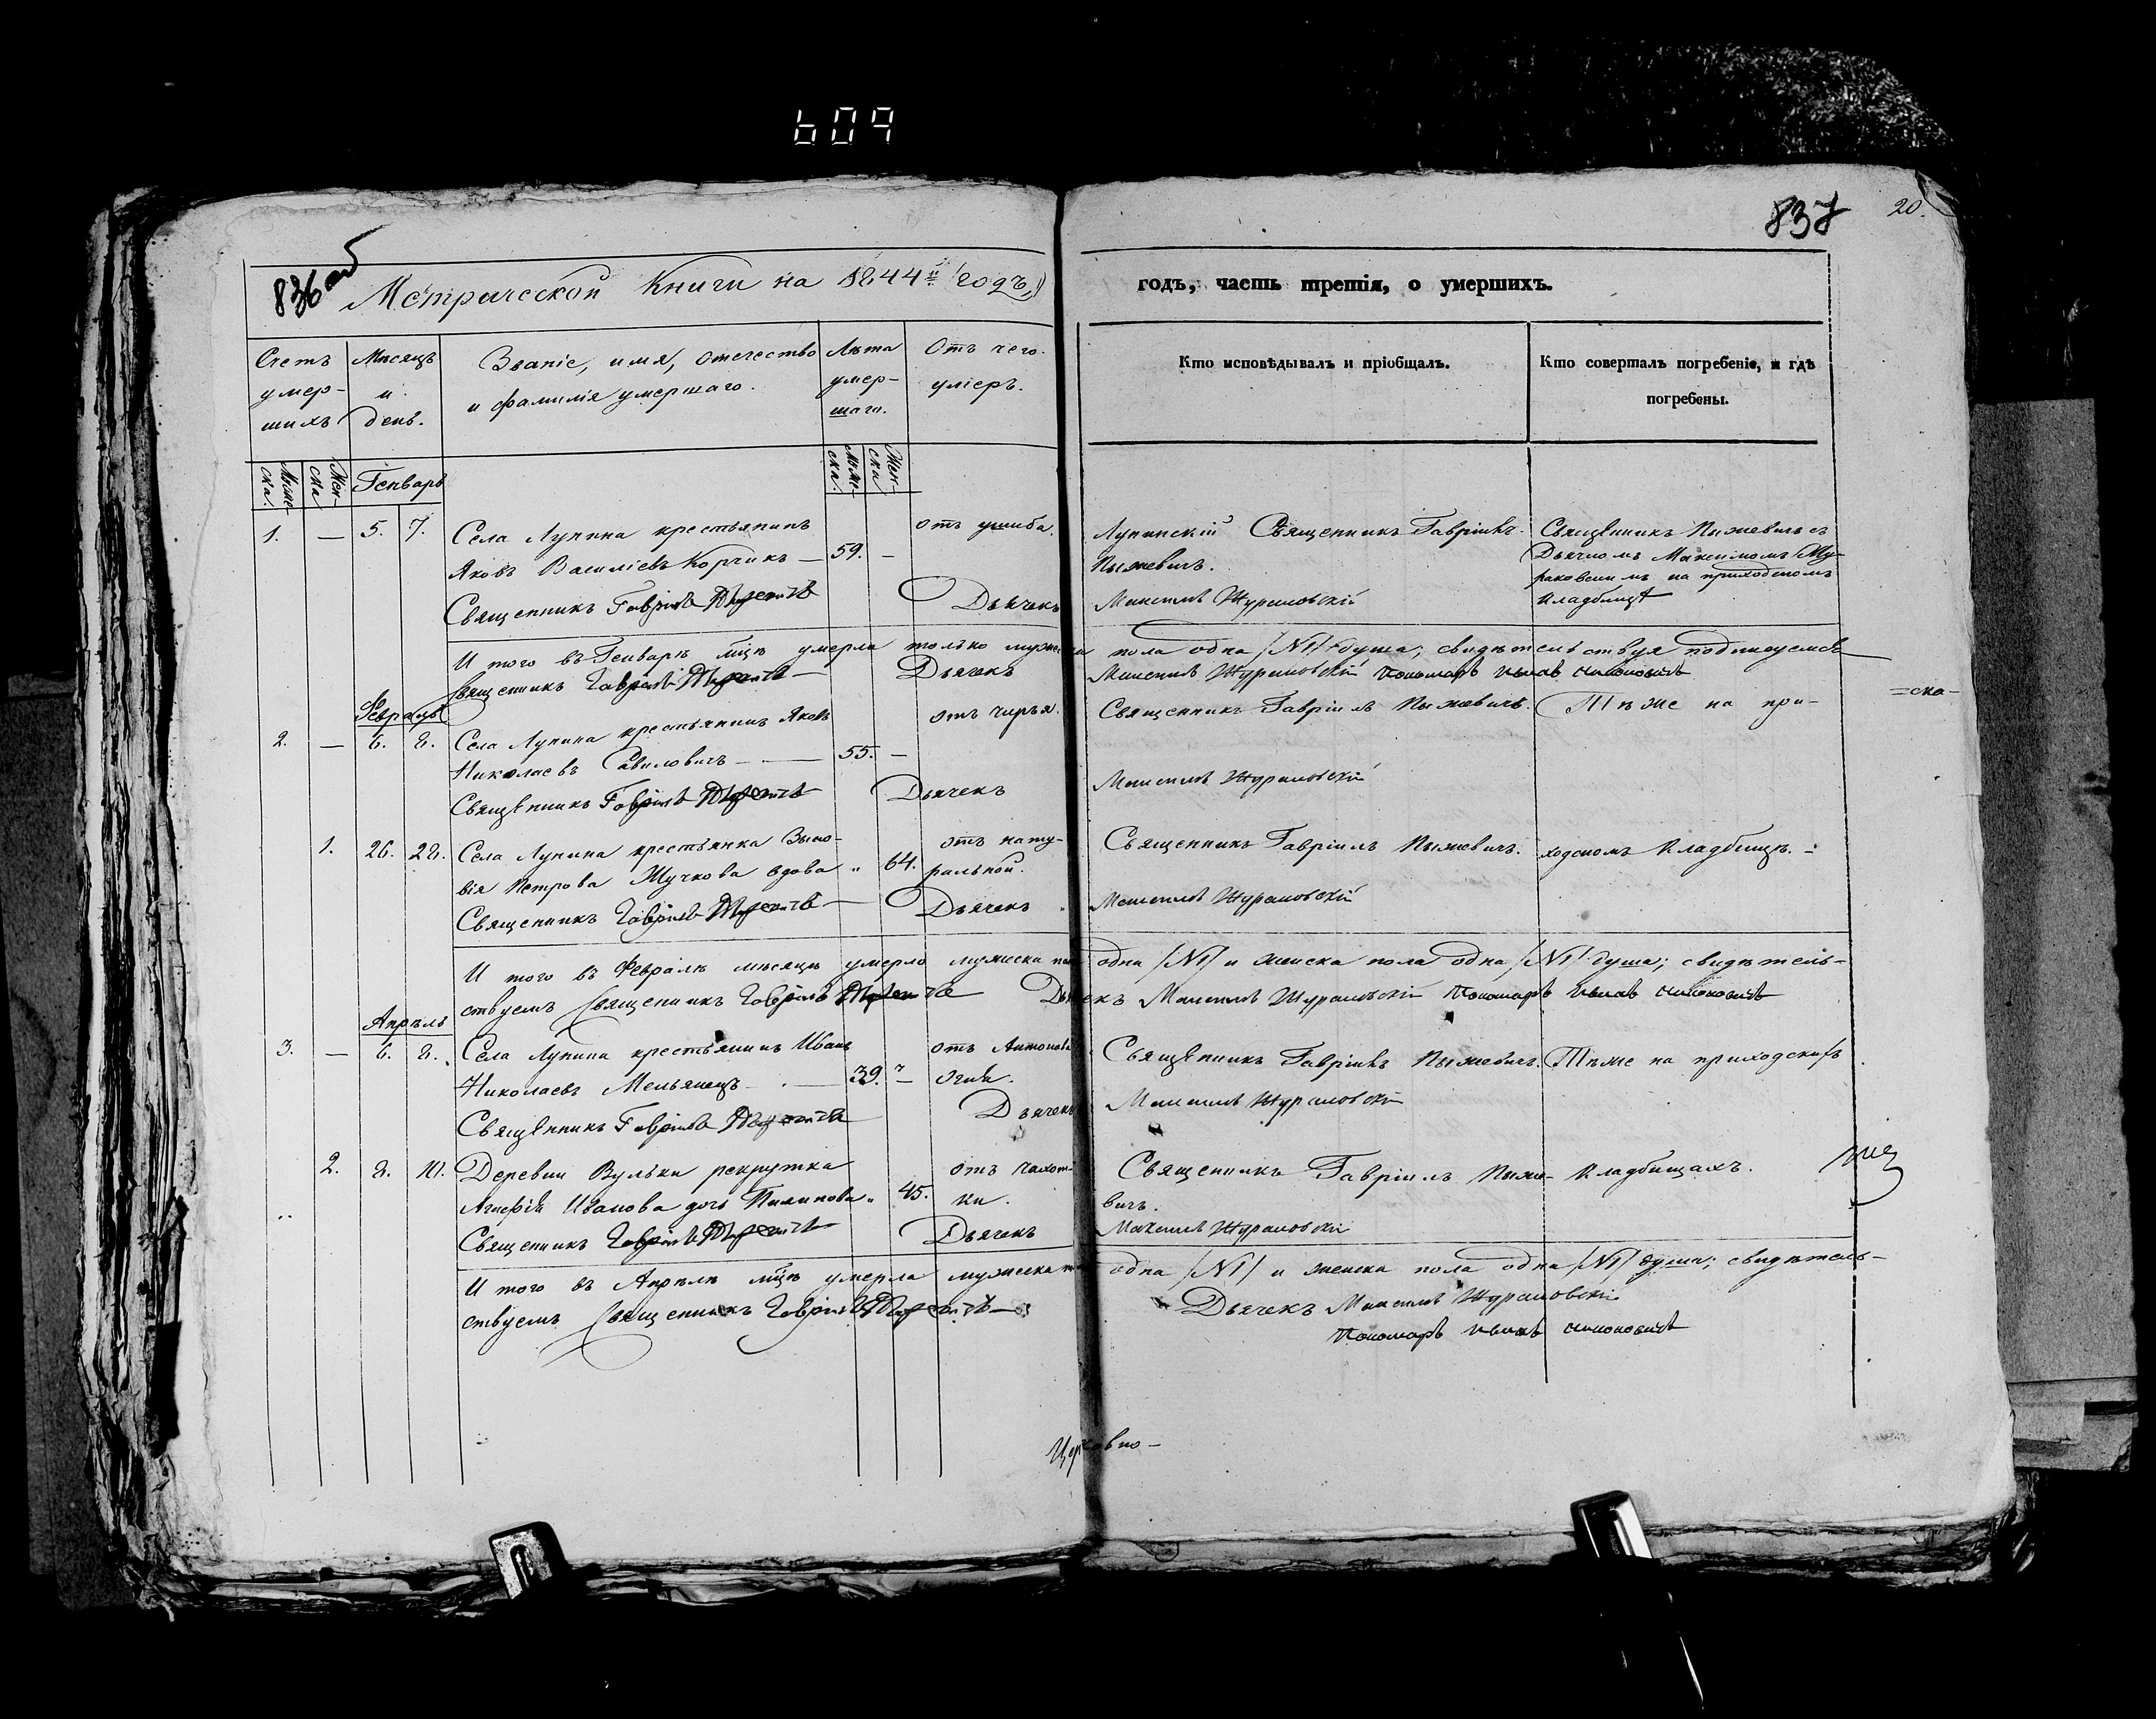 609
837
20.
836 об
Метрической Книги на 1844й годъ,
годъ, часть третія, о умершихъ.
Счетъ умер-шихъ
Мѣсяцъ и день.
Званіе, имя, отечество и фамилія умершаго.
Лѣта умер-шаго.
Отъ чего умеръ.
Кто исповѣдывалъ и пріобщалъ.
Кто совершалъ погребеніе, и гдѣ погребены.
Муже-ска.
Жен-ска
Генварь
Муже-ска
Жен-ска
1. — 5. 7. Села Лунина крестьянинъ
Яковъ Василіевъ Корчикъ — 59. —
отъ ушиба.
Лунинскій Священникъ Гавріилъ
Пыжевичъ.
Священникъ Пыжевичъ съ
Дьячкомъ Максимомъ Жу-
раковскимъ на приходскомъ
кладбищѣ
Священникъ Гавріилъ Дьячекъ Максимъ Журановскій
И того въ Генварѣ мцѣ умерла только мужеска пола одна /№1/ душа; свидѣтельствуя подписуемся
Священникъ Гавріилъ Дьячекъ Максимъ Журановскій Пономарь
Февраль
2. — 6. 8. Села Лунина крестьянинъ Яковъ
Николаевъ Савиловичъ — 55. —
отъ чирья.
Священникъ Гавріилъ Пыжевичъ.
Тѣ же на при-
=ска-
Священникъ Гавріилъ Дьячекъ Максимъ Журановскій
1. 26. 28. Села Лунина крестьянка Зино-
вія Петрова Жучкова вдова " 64.
отъ нату-
ральной.
Священникъ Гавріилъ Пыжевичъ.
ходскомъ Кладбищѣ. –
Священникъ Гавріилъ Дьячекъ Максимъ Журановскій
И того въ Февралѣ мѣсяцѣ умерло мужеска пола одна /№1/ и женска пола одна /№1/ душа; свидѣтель-
ствуемъ Священникъ Гавріилъ Дьячекъ Максимъ Журановскій Пономарь
Апрѣль
3. — 6. 8. Села Лунина крестьянинъ Иванъ
Николаевъ Мельянецъ — 39. —
отъ Антонова
огня.
Священникъ Гавріилъ Пыжевичъ.
Тѣ же на приходскихъ
Священникъ Гавріилъ Дьячекъ Максимъ Журановскій
2. 8. 10. Деревни Вульки рекрутка
Агафія Иванова дочь " 45.
отъ чахот-
ки.
Священникъ Гавріилъ Пыже-
вичъ.
Кладбищахъ.
Священникъ Гавріилъ Дьячекъ Максимъ Журановскій
И того въ Апрѣлѣ мцѣ умерла мужеска пола одна /№1/ и женска пола одна /№1/ душа; свидѣтель-
ствуемъ Священникъ Гавріилъ Дьячекъ Максимъ Журановскій
Пономарь
Церковно-